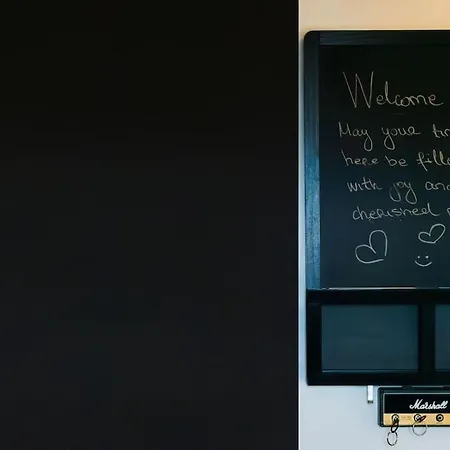 Welcome
May your
here be
with joy
cherished
Marshall